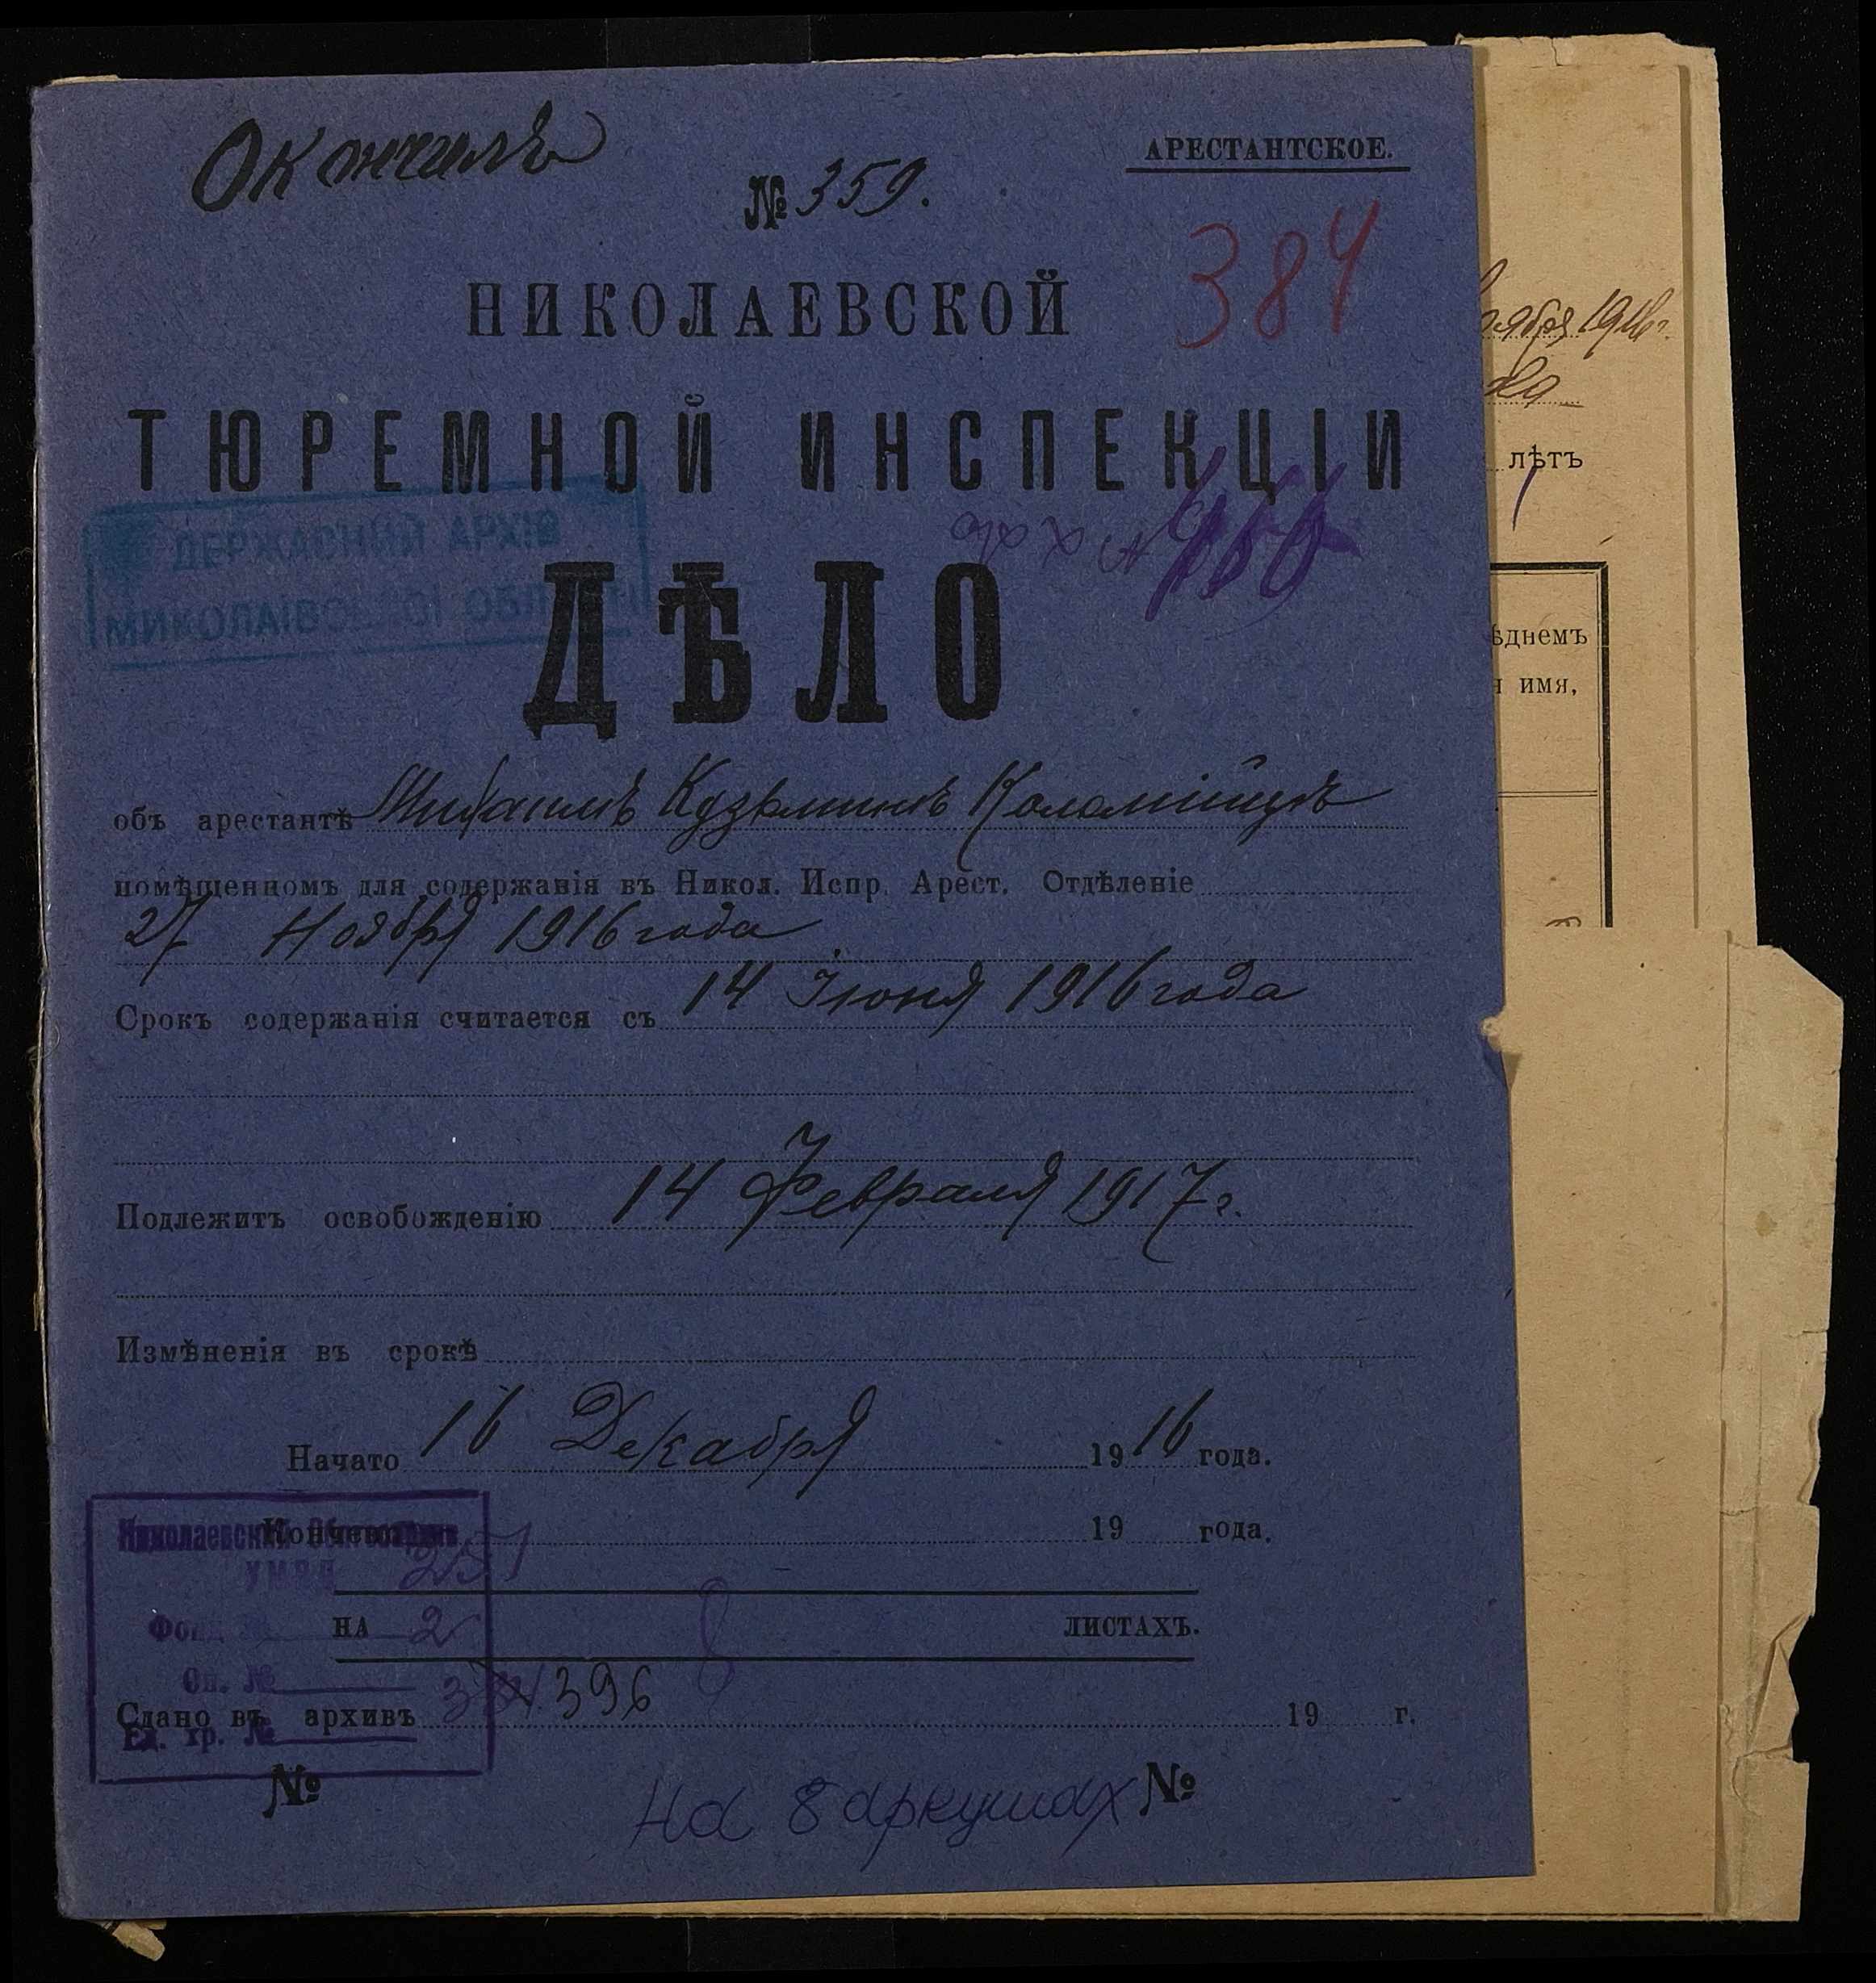 Окончилъ
АРЕСТАНТСКОЕ.
№ 359.
384
НИКОЛАЕВСКОЙ
ТЮРЕМНОЙ ИНСПЕКЦІИ
ДЕРЖАВНИЙ АРХІВ
МИКОЛАЇВСЬКОЇ ОБЛАСТІ
арх №
ДѢЛО
объ арестантѣ Михаилъ Кузьминъ Коломійцъ
помѣщенномъ для содержанія въ Никол. Испр. Арест. Отдѣленіе
27 Ноября 1916 года
Срокъ содержанія считается съ 14 Іюня 1916 года
Подлежитъ освобожденію 14 Февраля 1917 г.
Измѣненія въ срокѣ
Начато 16 Декабря 1916 года.
Кончено 19 года.
Николаевский Облгосархив
УМВД 257
Фонд №
НА 2 ЛИСТАХЪ.
Оп. №
Сдано въ архивъ 396 19 г.
Ед. хр. №
№ №
На 8 аркушах
ноября 1916 г.
лѣтъ
ѣднемъ
я имя,